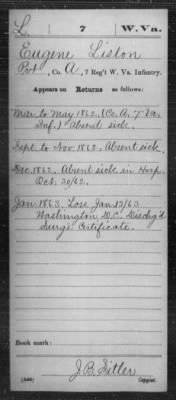 L | 7 | W. Va.
Eugene Liston
Pvt, Co. A, 7 Reg't W. Va. Infantry.
Appears on
Returns as follows:
Mar to May 1862. (Co. A, 7" Va.
Inf.) Absent sick.
Sept. to Nov. 1862. Absent sick.
Dec. 1862. Absent sick in Hosp.
Oct. 30/62.
Jan. 1863. Loss Jan 12/63
Washington D.C. Dischg'd
Surg's Certificate.
Book mark:
J. B. Sitler
(546) Copyist.